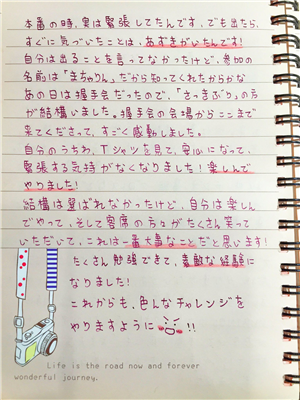 本番の時、実は緊張してたんです、でも出たら、
すぐに気づいたことは、あずきがいたんです!
自分は出ることを言ってなかったけど、参加の
名前は「まちゃりん」だから知ってくれたからかな
あの日は握手会だったので、「さっきぶり」の方
が結構いました。握手会の会場からここまで
来てくださって、すごく感動しました。
自分のうちわ、Tシャツを見て、安心になって、
緊張する気持がなくなりました!楽しんで
やりました!
結構は選ばれなかったけど、自分は楽しん
でやって、そして客席の方々がたくさん笑って
いただいて、これは一番大事なことだと思います!
たくさん勉強できて、素敵な経験に
なりました!
これからも、色んなチャレンジを
やりますように!!
Life is the road now and forever
wonderful journey.